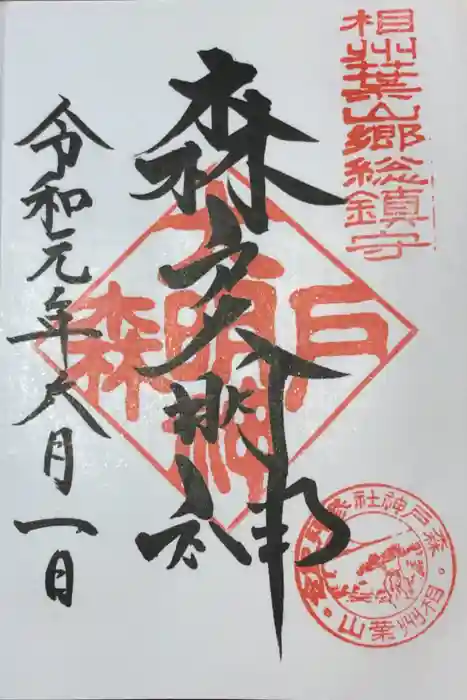 相州葉山郷総鎮守
森戸大明神
令和元年六月一日
森戸
大明神
森戸神社参拝
相州葉山